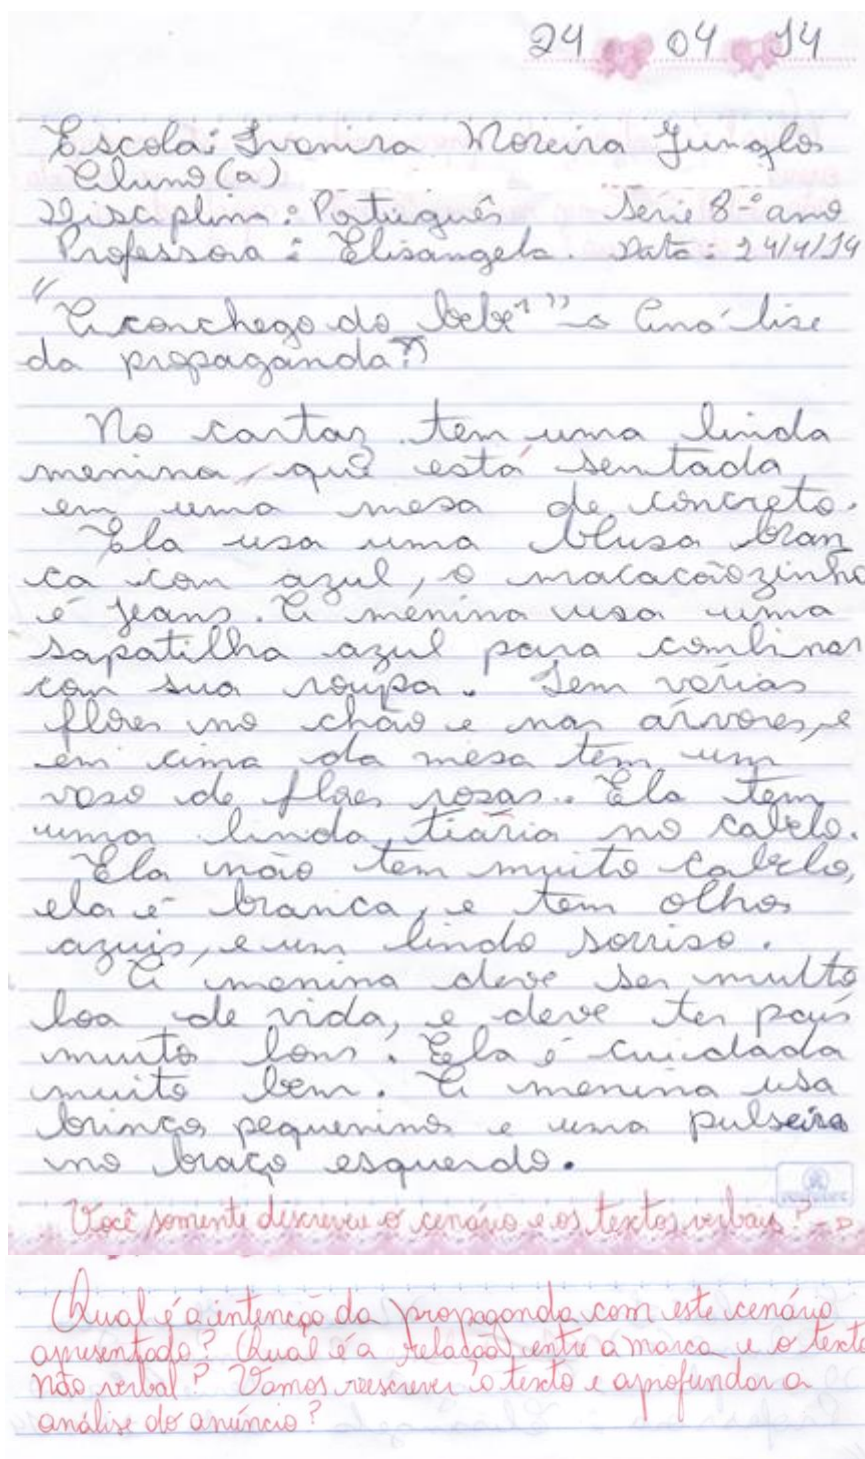 24 04 14
Escola: Ivanira Moreira Junglos
Aluno(a)
Disciplina: Português Série 8º ano
Professora: Elisangela. Data: 24/4/14
"Aconchego do bebê" → Análise
da propaganda?
No cartaz tem uma linda
menina, que está sentada
em uma mesa de concreto.
Ela usa uma blusa bran
ca con azul, o macacãozinho
é jeans. A menina usa uma
sapatilha azul para combinar
con sua roupa. Tem várias
flores no chão e nas árvores, e
em cima da mesa tem um
vaso de flores rosas. Ela tem
uma linda tiária no cabelo.
Ela não tem muito cabelo,
ela é branca, e tem olhos
azuis, e um lindo sorriso.
A menina deve ser muito
boa de vida, e deve ter pais
muito bons. Ela é cuidada
muito bem. A menina usa
brincos pequeninos e uma pulseira
no braço esquerdo.
Você somente descreveu o cenário e os textos verbais? →
Qual é a intenção da propaganda com este cenário
apresentado? Qual é a relação entre a marca e o texto
não verbal? Vamos reescrever o texto e aprofundar a
análise do anúncio?